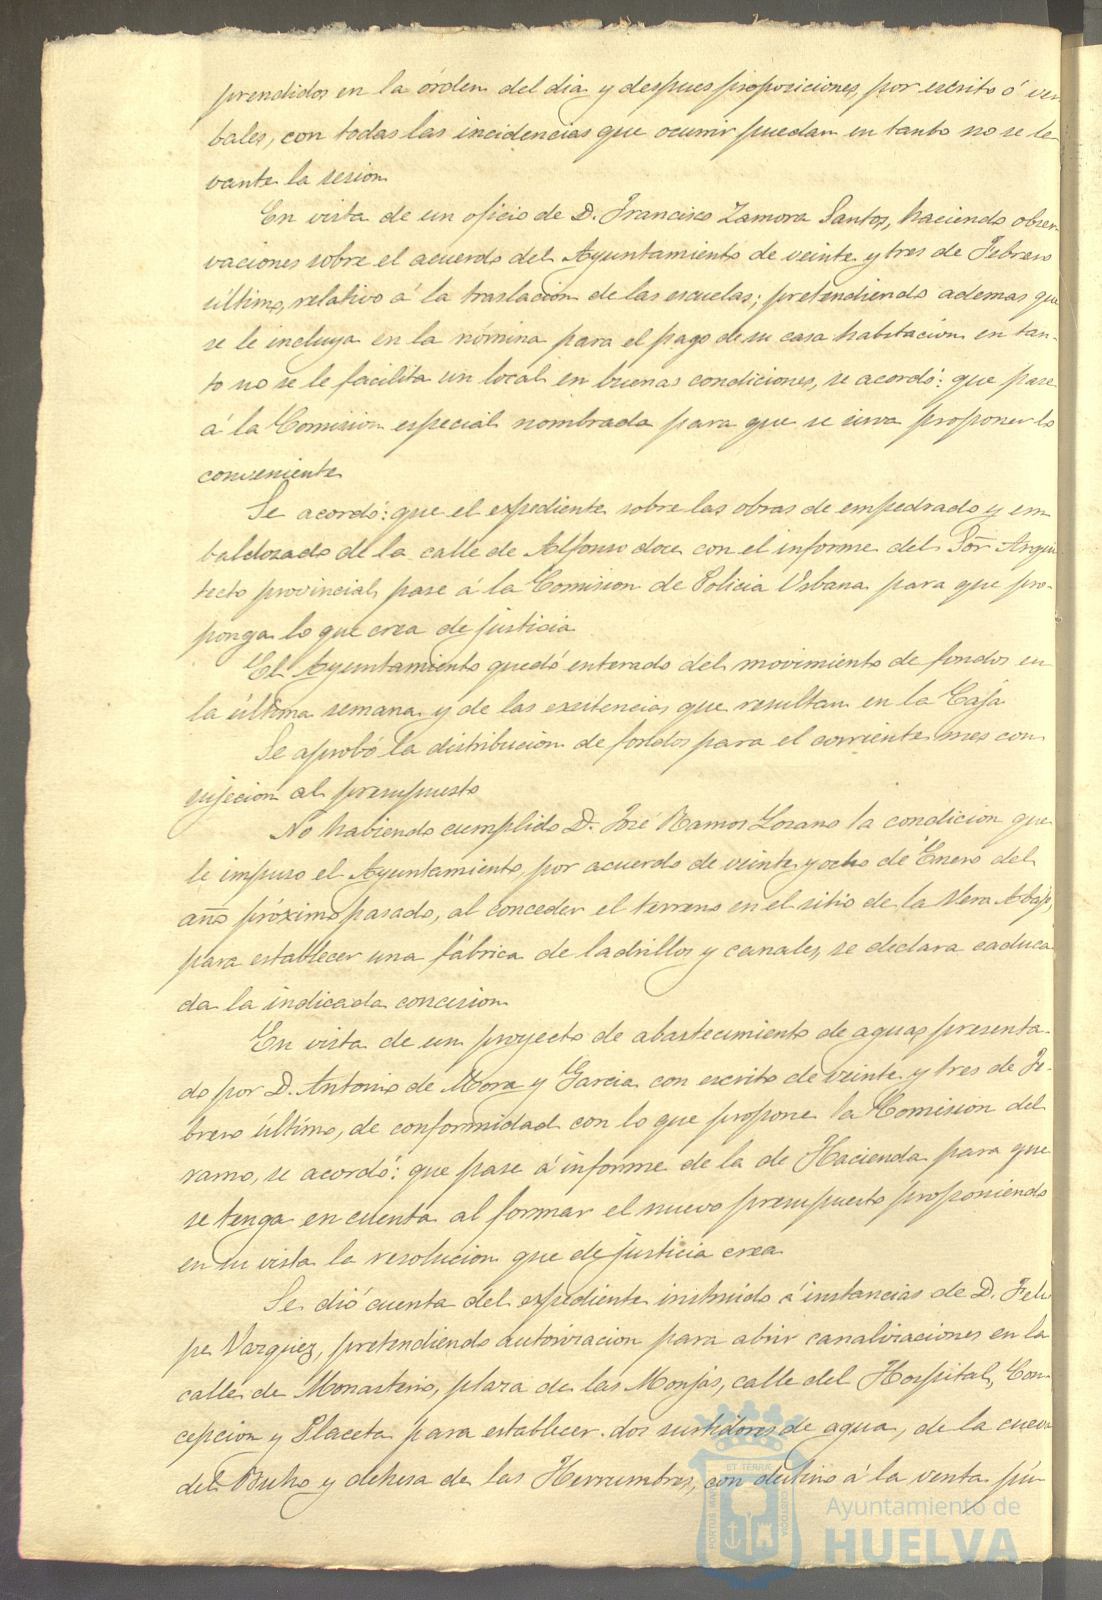 prendidos en la órden del dia y despues proposiciones, por escrito ó ver
bales, con todas las incidencias que ocurrir puedan en tanto no se le
vante la sesion
En vista de un oficio de D. Francisco Zamora Santos, haciendo obser
vaciones sobre el acuerdo del Ayuntamiento de veinte y tres de Febrero
último, relativo á la traslacion de las escuelas; pretendiendo ademas que
se le incluya en la nómina para el pago de su casa habitacion en tan-
to no se le facilita un local en buenas condiciones, se acordó: que pase
á la Comision especial nombrada para que se sirva proponer lo
conveniente
Se acordó: que el expediente sobre las obras de empedrado y em
baldozado de la calle de Alfonso doce con el informe del Sõr Arqui
tecto provincial, pase á la Comision de Policia Urbana para que pro-
ponga lo que crea de justicia
El Ayuntamiento quedó enterado del movimiento de fondos en
la última semana y de las exitencias que resultan en la Caja
Se aprobó la distribucion de fondos para el corriente mes con
sujecion al presupuesto
No habiendo cumplido D. José Ramos Lozano la condicion que
le impuso el Ayuntamiento, por acuerdo de veinte y ocho de Enero del
año próximo pasado, al conceder el terreno en el sitio de la Vera Abajo,
para establecer una fábrica de ladrillos y canales, se declara caduca
da la indicada concesion
En vista de un proyecto de abastecimiento de aguas presenta-
do por D. Antonio de Mora y Garcia con escrito de veinte y tres de Fe-
brero último, de conformidad con lo que propone la Comision del
ramo, se acordó: que pase á informe de la de Hacienda para que
se tenga en cuenta al formar el nuevo presupuesto proponiendo
en su vista la resolucion que de justicia crea
Se dió cuenta del expediente instruido á instancias de D. Feli
pe Vazquez, pretendiendo autorizacion para abrir canalizaciones en la
calle de Monasterio, plaza de las Monjas, calle del Hospital, Con
cepcion y Placeta para establecer dos surtidores de agua, de la cueva
del Buho y dehesa de las Herrumbres, con destino á la venta pú-
Ayuntamiento de
HUELVA